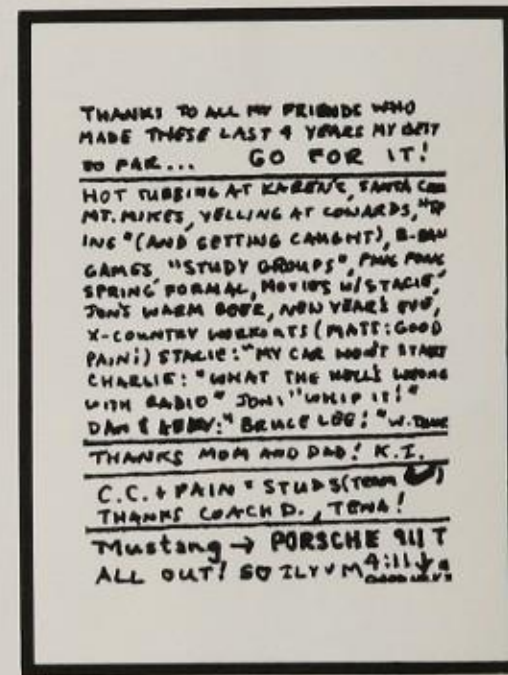 THANKS TO ALL MY FRIENDS WHO
MADE THESE LAST 4 YEARS MY BEST
SO FAR... GO FOR IT!
HOT TUBBING AT KAREN'S, SANTA
MT. MIKES, YELLING AT COWARDS,
ING" (AND GETTING CAUGHT),
GAMES "STUDY GROUPS",
SPRING FORMAL, MOVIES W/STACIE,
JON'S WARM BEER, NEW YEAR'S EVE,
X-COUNTRY WORKOUTS (MATT: GOOD
PAIN!) STACIE: "MY CAR WON'T START
CHARLIE: "WHAT THE HELL'S WRONG
WITH RADIO" JON: "WHIP IT!"
DAN & : "BRUCE LEE!"
THANKS MOM AND DAD! K.I.
C.C. + PAIN = STUDS (TEAM )
THANKS COACH D., TENA!
Mustang → PORSCHE 911 T
ALL OUT! SO ILYVM 4:11